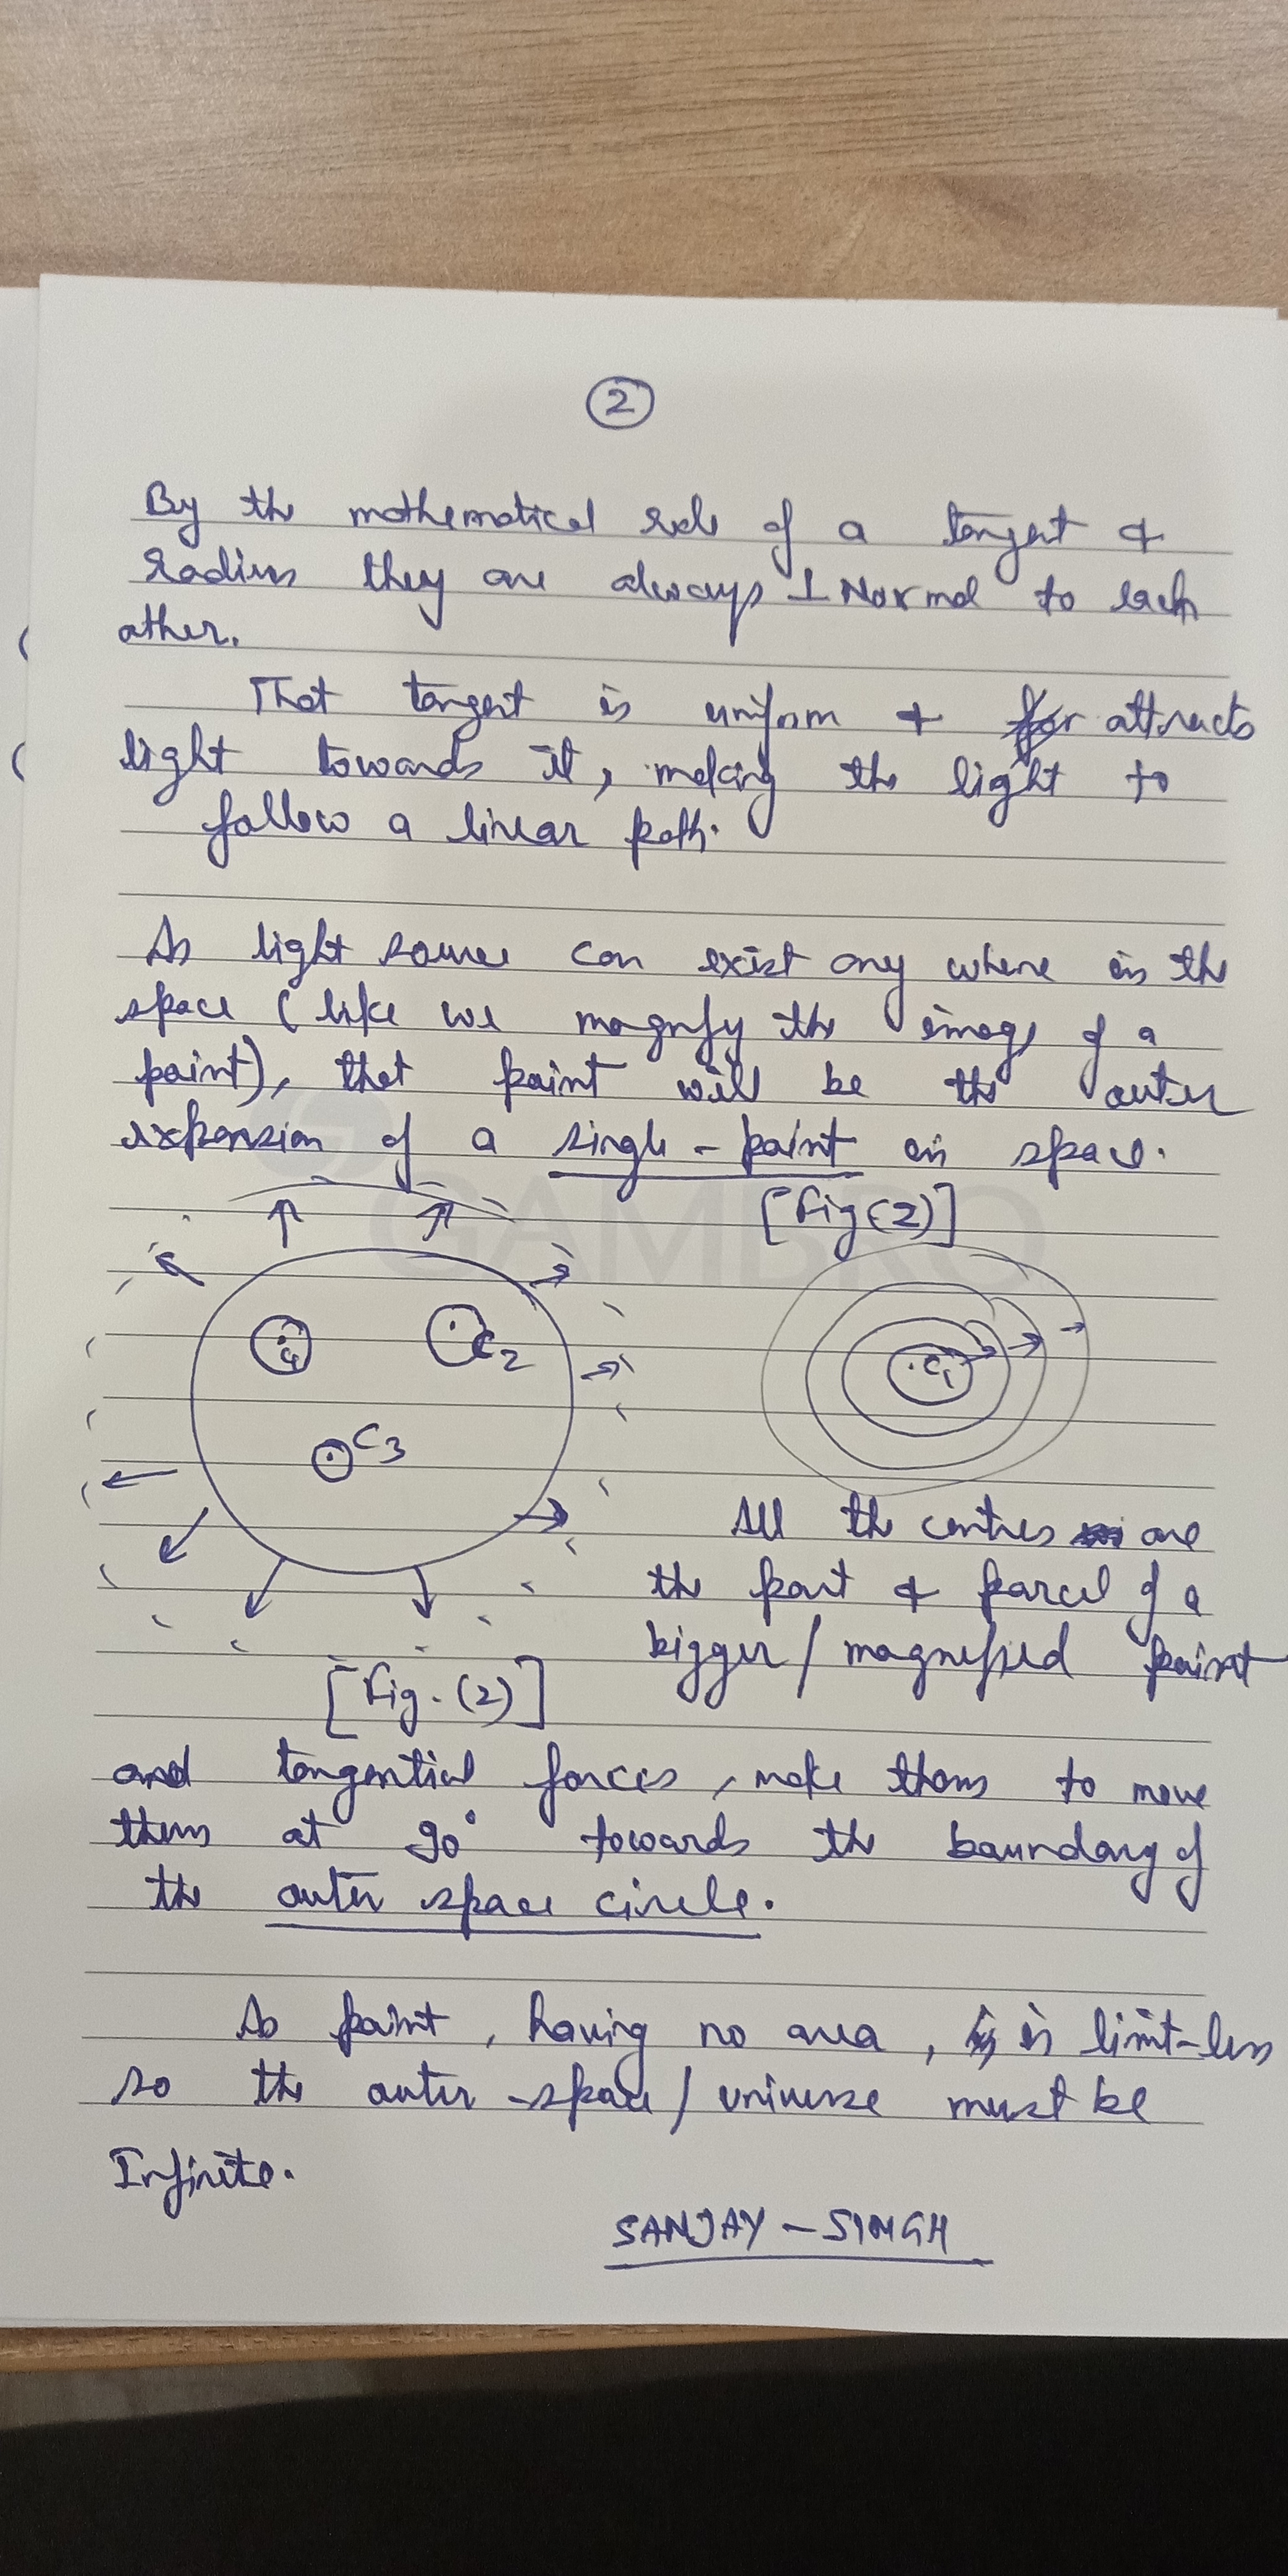 2
By the mathematical rule of a tangent &
radius they are always ⊥ Normal to each
other.
That tangent is uniform & attracts
light towards it, making the light to
follow a linear path.
As light source can exist any where in the
space (like we magnify the image of a
point), that point will be the outer
expansion of a single - point in space.
[Fig (2)]
C1
C2
C3
C1
All the centres are
the part & parcel of a
bigger / magnified point
[Fig. (2)]
and tangential forces, make them to move
them at 90° towards the boundary of
the outer space circle.
As point, having no area, is limit-less
so the outer -space / universe must be
Infinite.
SANJAY - SINGH
GAMBRO